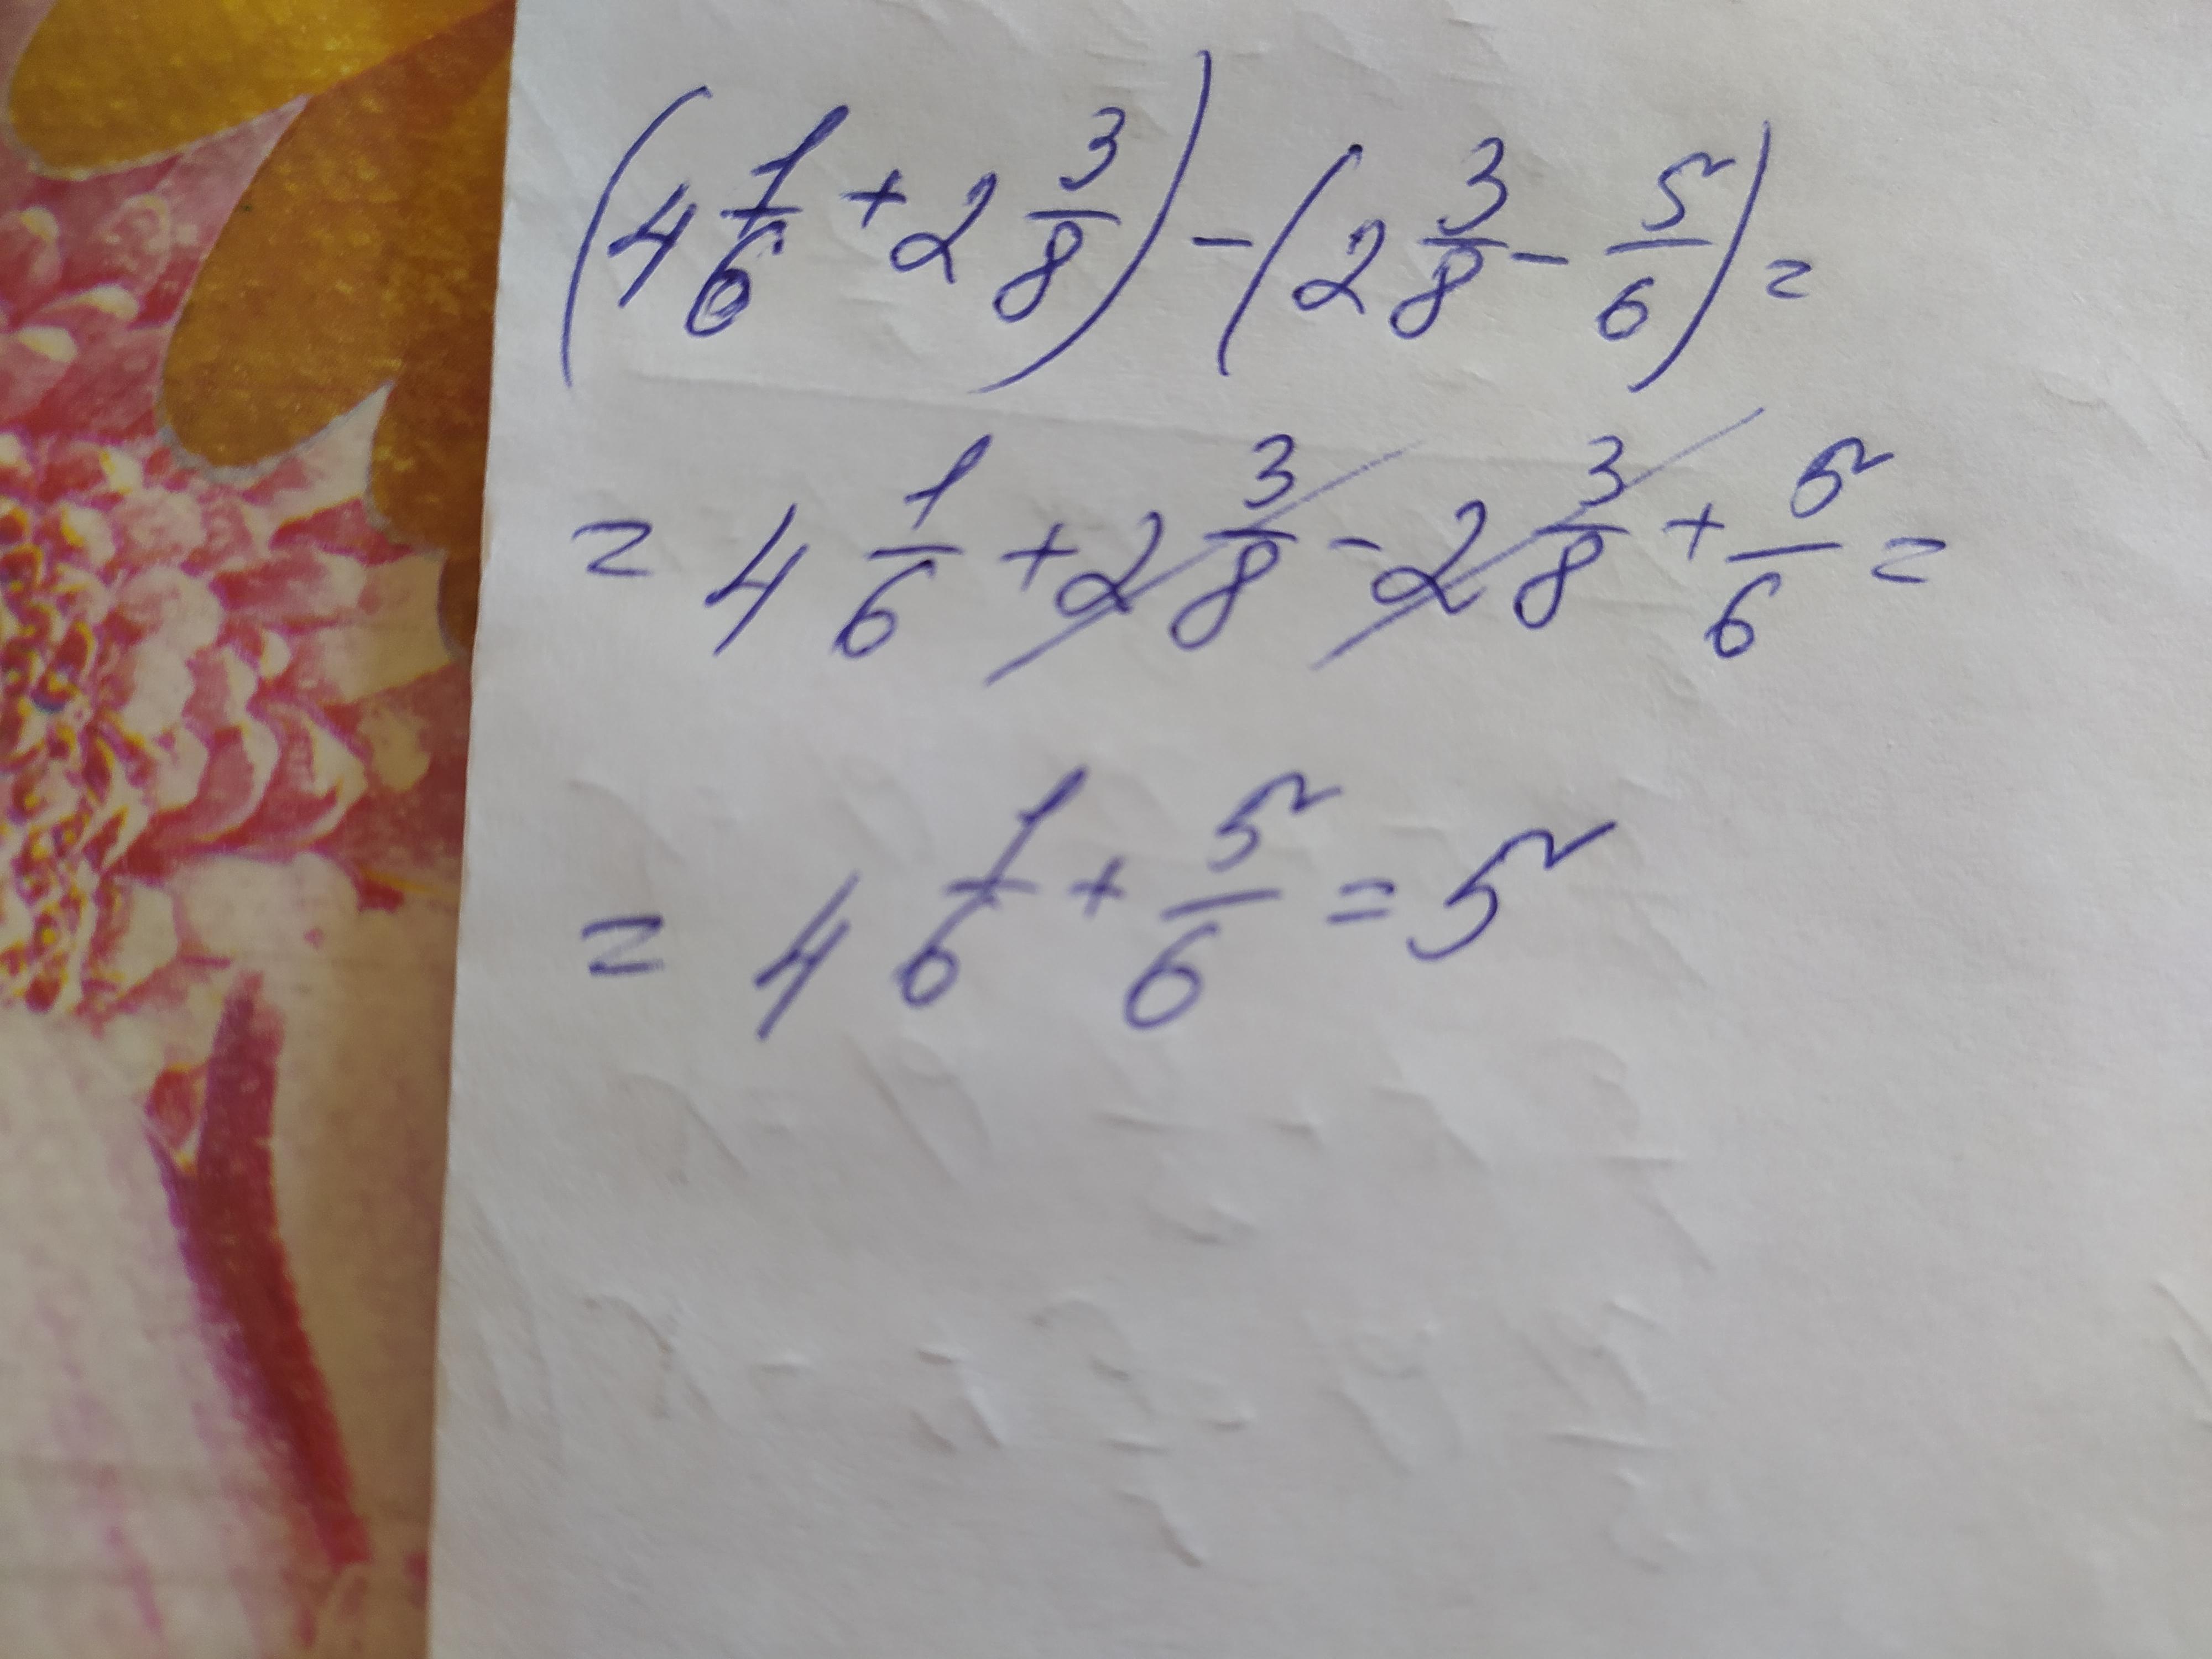 (4 1/6 + 2 3/8) - (2 3/8 - 5/6) =
= 4 1/6 + 2 3/8 - 2 3/8 + 5/6 =
= 4 1/6 + 5/6 = 5